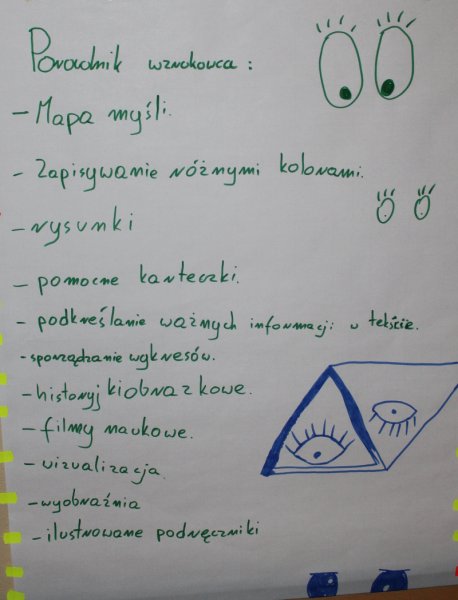 Poradnik wzrokowca:
- Mapa myśli.
- Zapisywanie różnymi kolorami.
- rysunki
- pomocne karteczki.
- podkreślanie ważnych informacji w tekście.
- sporządzanie wykresów.
- historyjki obrazkowe.
- filmy naukowe.
- wizualizacja.
- wyobraźnia
- ilustrowane podręczniki